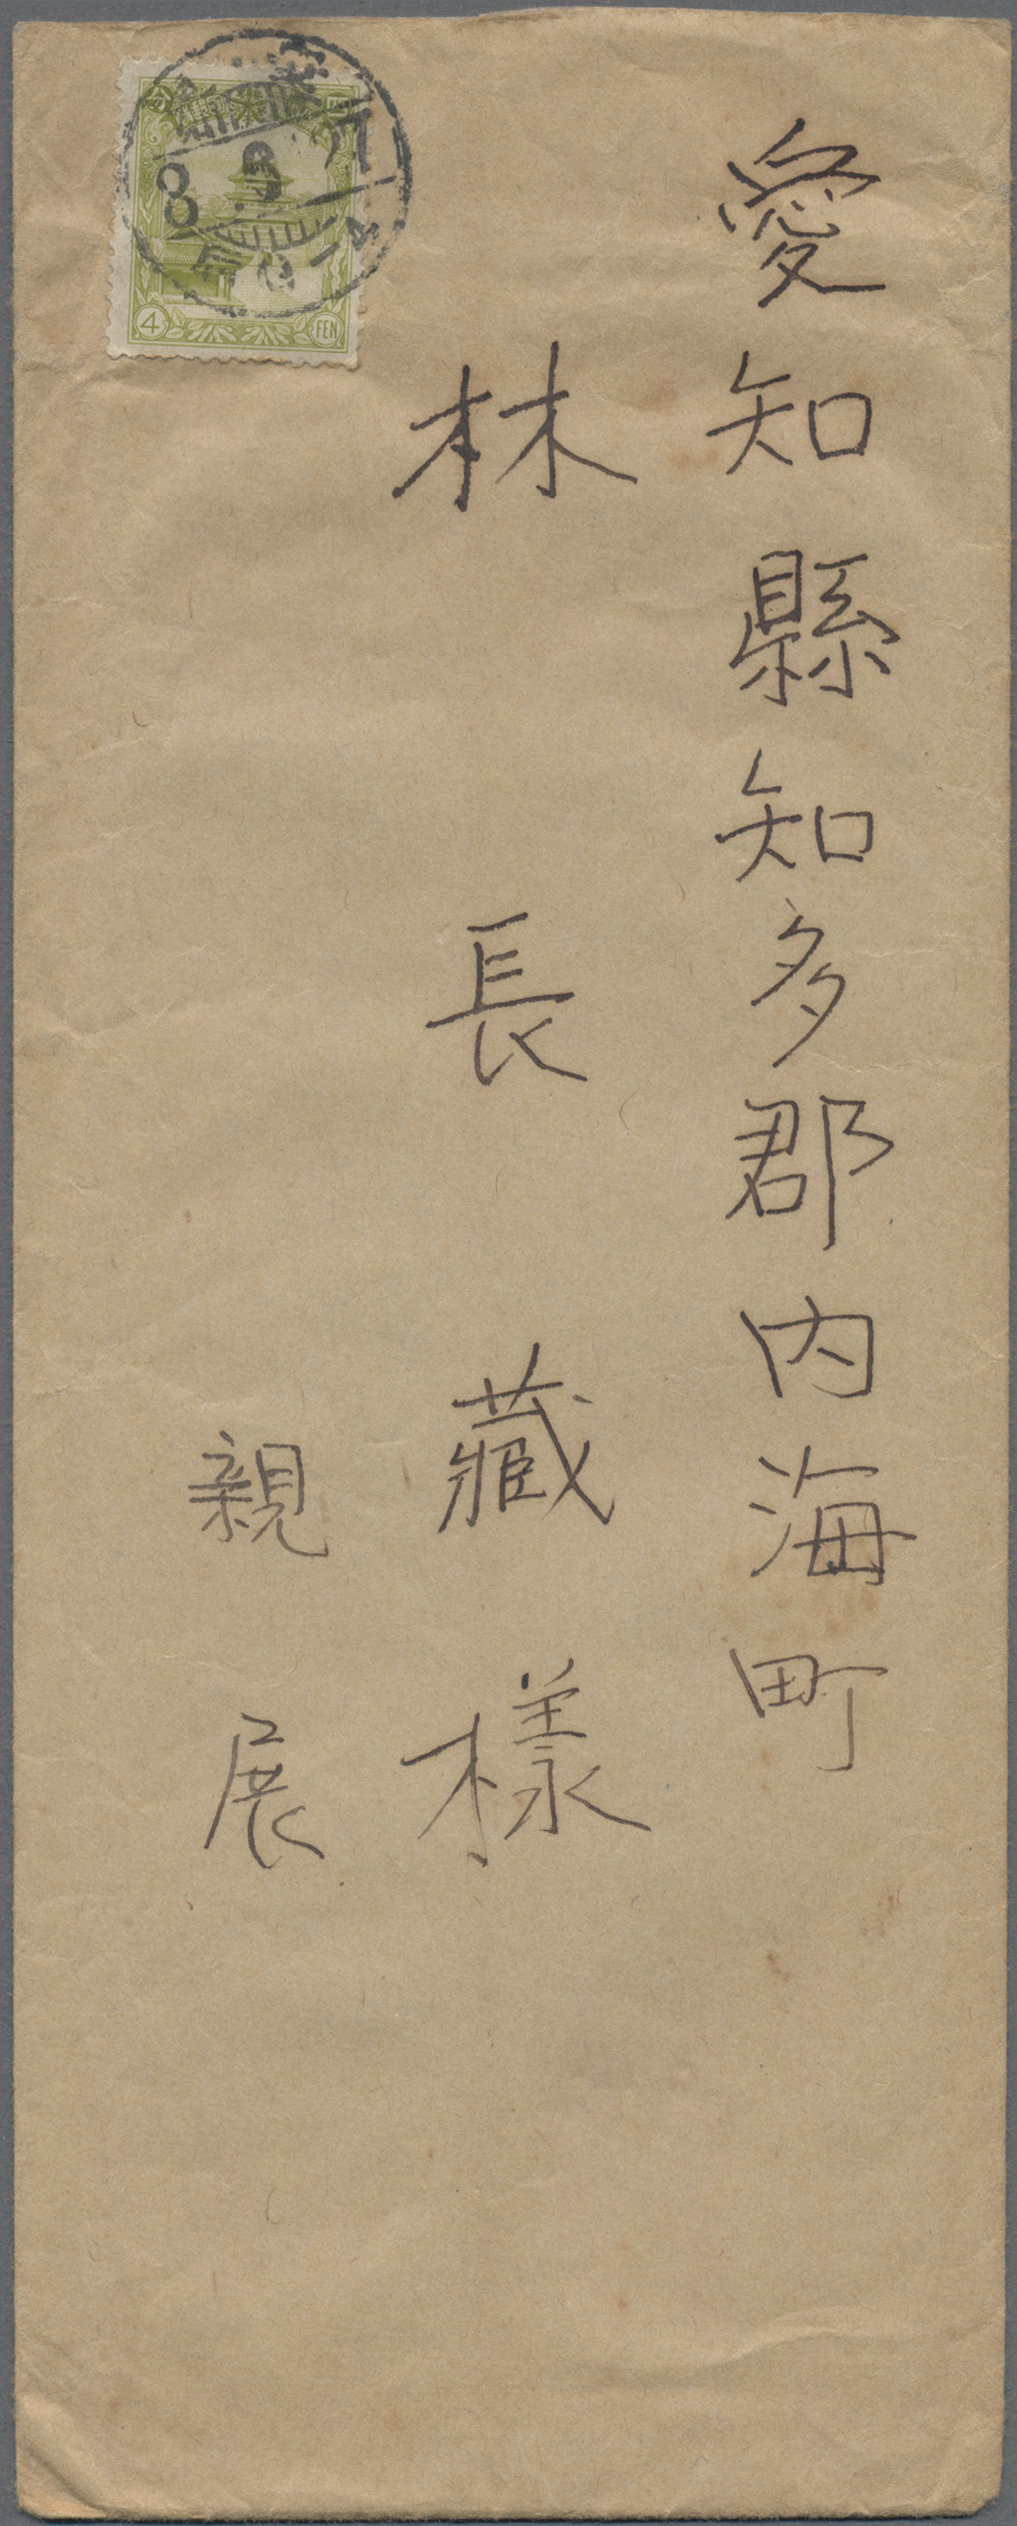 愛知縣知多郡内海町
林長藏様
親展
4 FEN
8